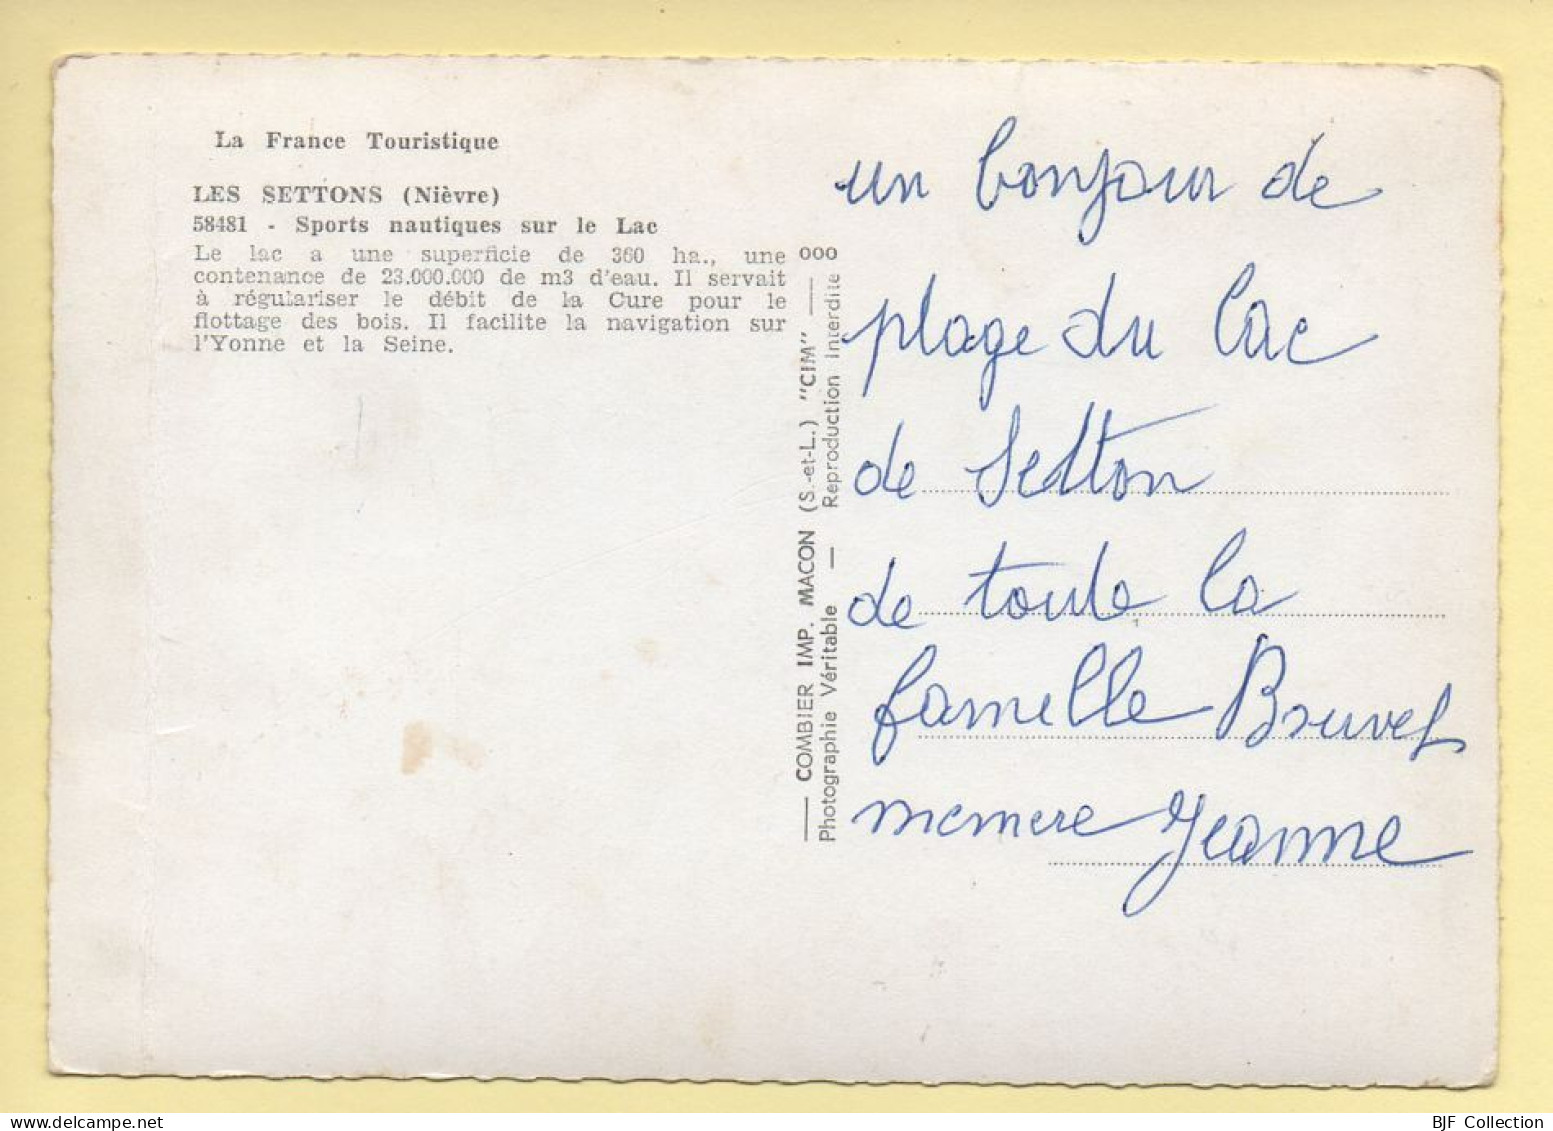 La France Touristique
LES SETTONS (Nièvre)
58481 - Sports nautiques sur le Lac
Le lac a une superficie de 360 ha., une
contenance de 23.000.000 de m3 d'eau. Il servait
à régulariser le débit de la Cure pour le
flottage des bois. Il facilite la navigation sur
l'Yonne et la Seine.
ooo
— COMBIER IMP. MACON (S.-et-L.) "CIM" —
Photographie Véritable — Reproduction Interdite
un bonjour de
plage du lac
de Setton
de toute la
famelle Bruvet
memere Jeanne
delcampe.net
BJF Collection